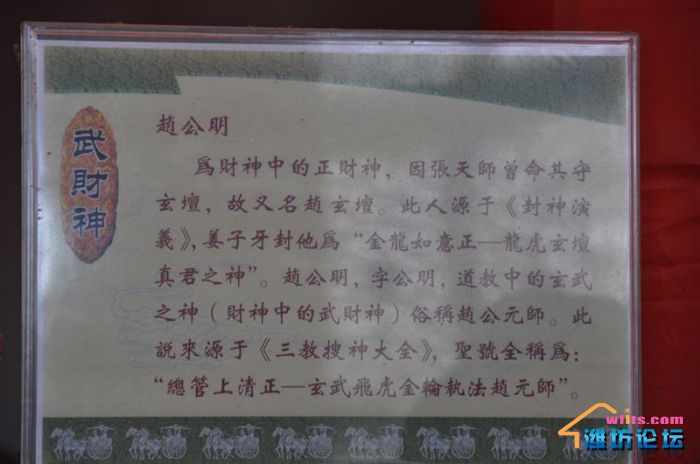 武財神
趙公明
爲財神中的正財神，因張天師曾命其守
玄壇，故又名趙玄壇。此人源于《封神演
義》，姜子牙封他爲“金龍如意正—龍虎玄壇
真君之神”。趙公明，字公明，道教中的玄武
之神（財神中的武財神）俗稱趙公元師。此
説來源于《三教搜神大全》，聖號全稱爲：
“總管上清正—玄武飛虎金輪執法趙元師”。
wfits.com
潍坊论坛